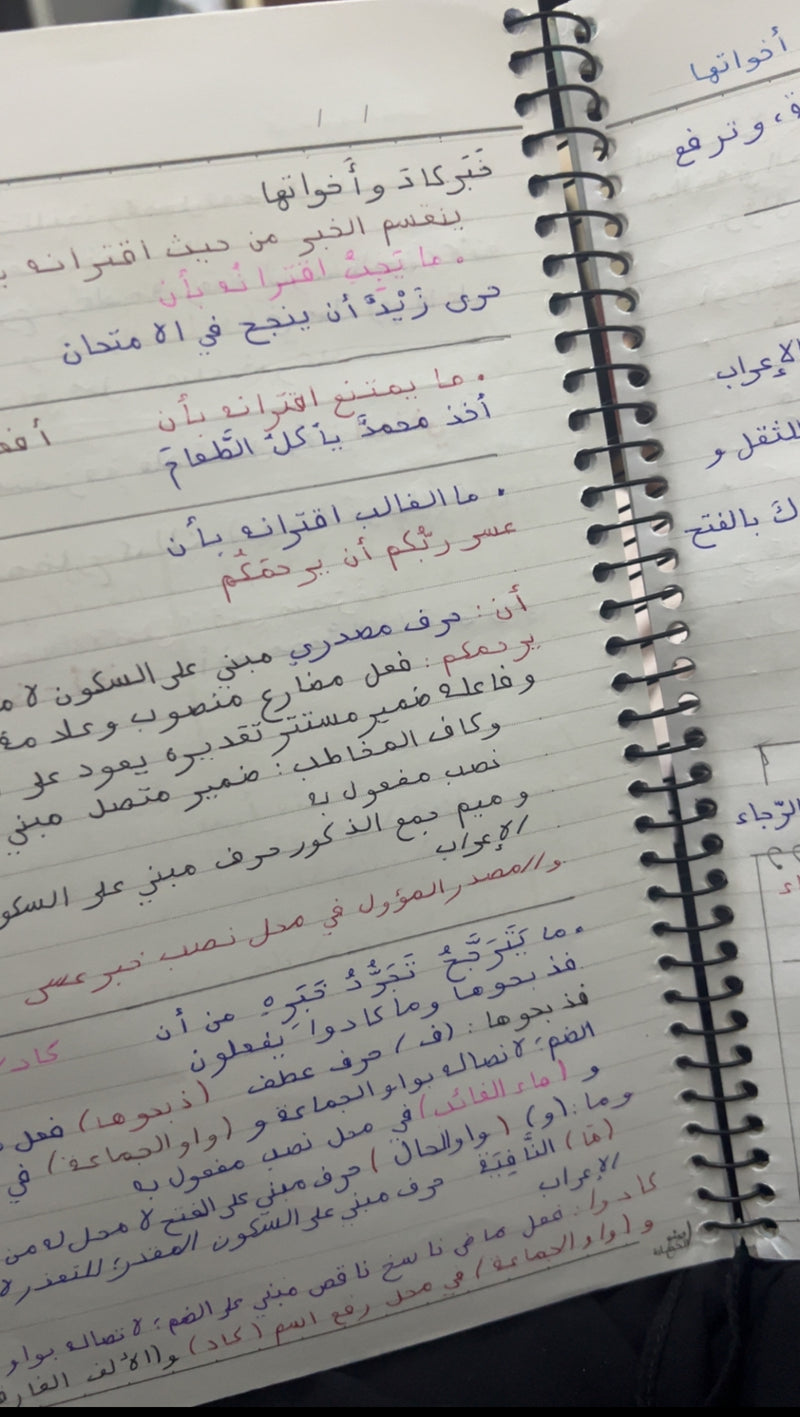 خَبَر كادَ وأَخواتها
ينقسم الخبر من حيث اقترانه
. ما يَجِبُ اقترانُه بأن
حرى زَيْدٌ أن ينجح في الامتحان
. ما يمتنع اقترانه بأن
أخذ محمدٌ يأكلُ الطَّعامَ
. ما الغالب اقترانه بأن
عسى ربُّكم أن يرحمَكُم
أن: حرف مصدري مبني على السكون لا
يرحمكم: فعل مضارع منصوب وعلامة
وفاعله ضمير مستتر تقديره يعود على
وكاف المخاطب: ضمير متصل مبني
نصب مفعول به
وميم جمع الذكور حرف مبني على
الإعراب
والمصدر المؤول في محل نصب خبر عسى
. ما يَتَرَجَّحُ تَجَرُّدُ خَبَرِهِ من أن
كاد
فذبحوها وما كادوا يفعلون
فذبحوها: (ف) حرف عطف (ذبحوها) فعل
الضم؛ لاتصاله بواو الجماعة و (واو الجماعة) في
و (هاء الغائب) في محل نصب مفعول به
وما: (و) (واو الحال) حرف مبني على الفتح لا محل له من
(ما) النَّافِيَة حرف مبني على السكون المقدر؛ للتعذر
الإعراب
كادوا: فعل ماضي ناسخ ناقص مبني على الضم؛ لاتصاله بواو
و (واو الجماعة) في محل رفع اسم (كاد) والألف
أخواتها
ة، وترفع
الإعراب
للثقل و
ك بالفتح
الرّجاء